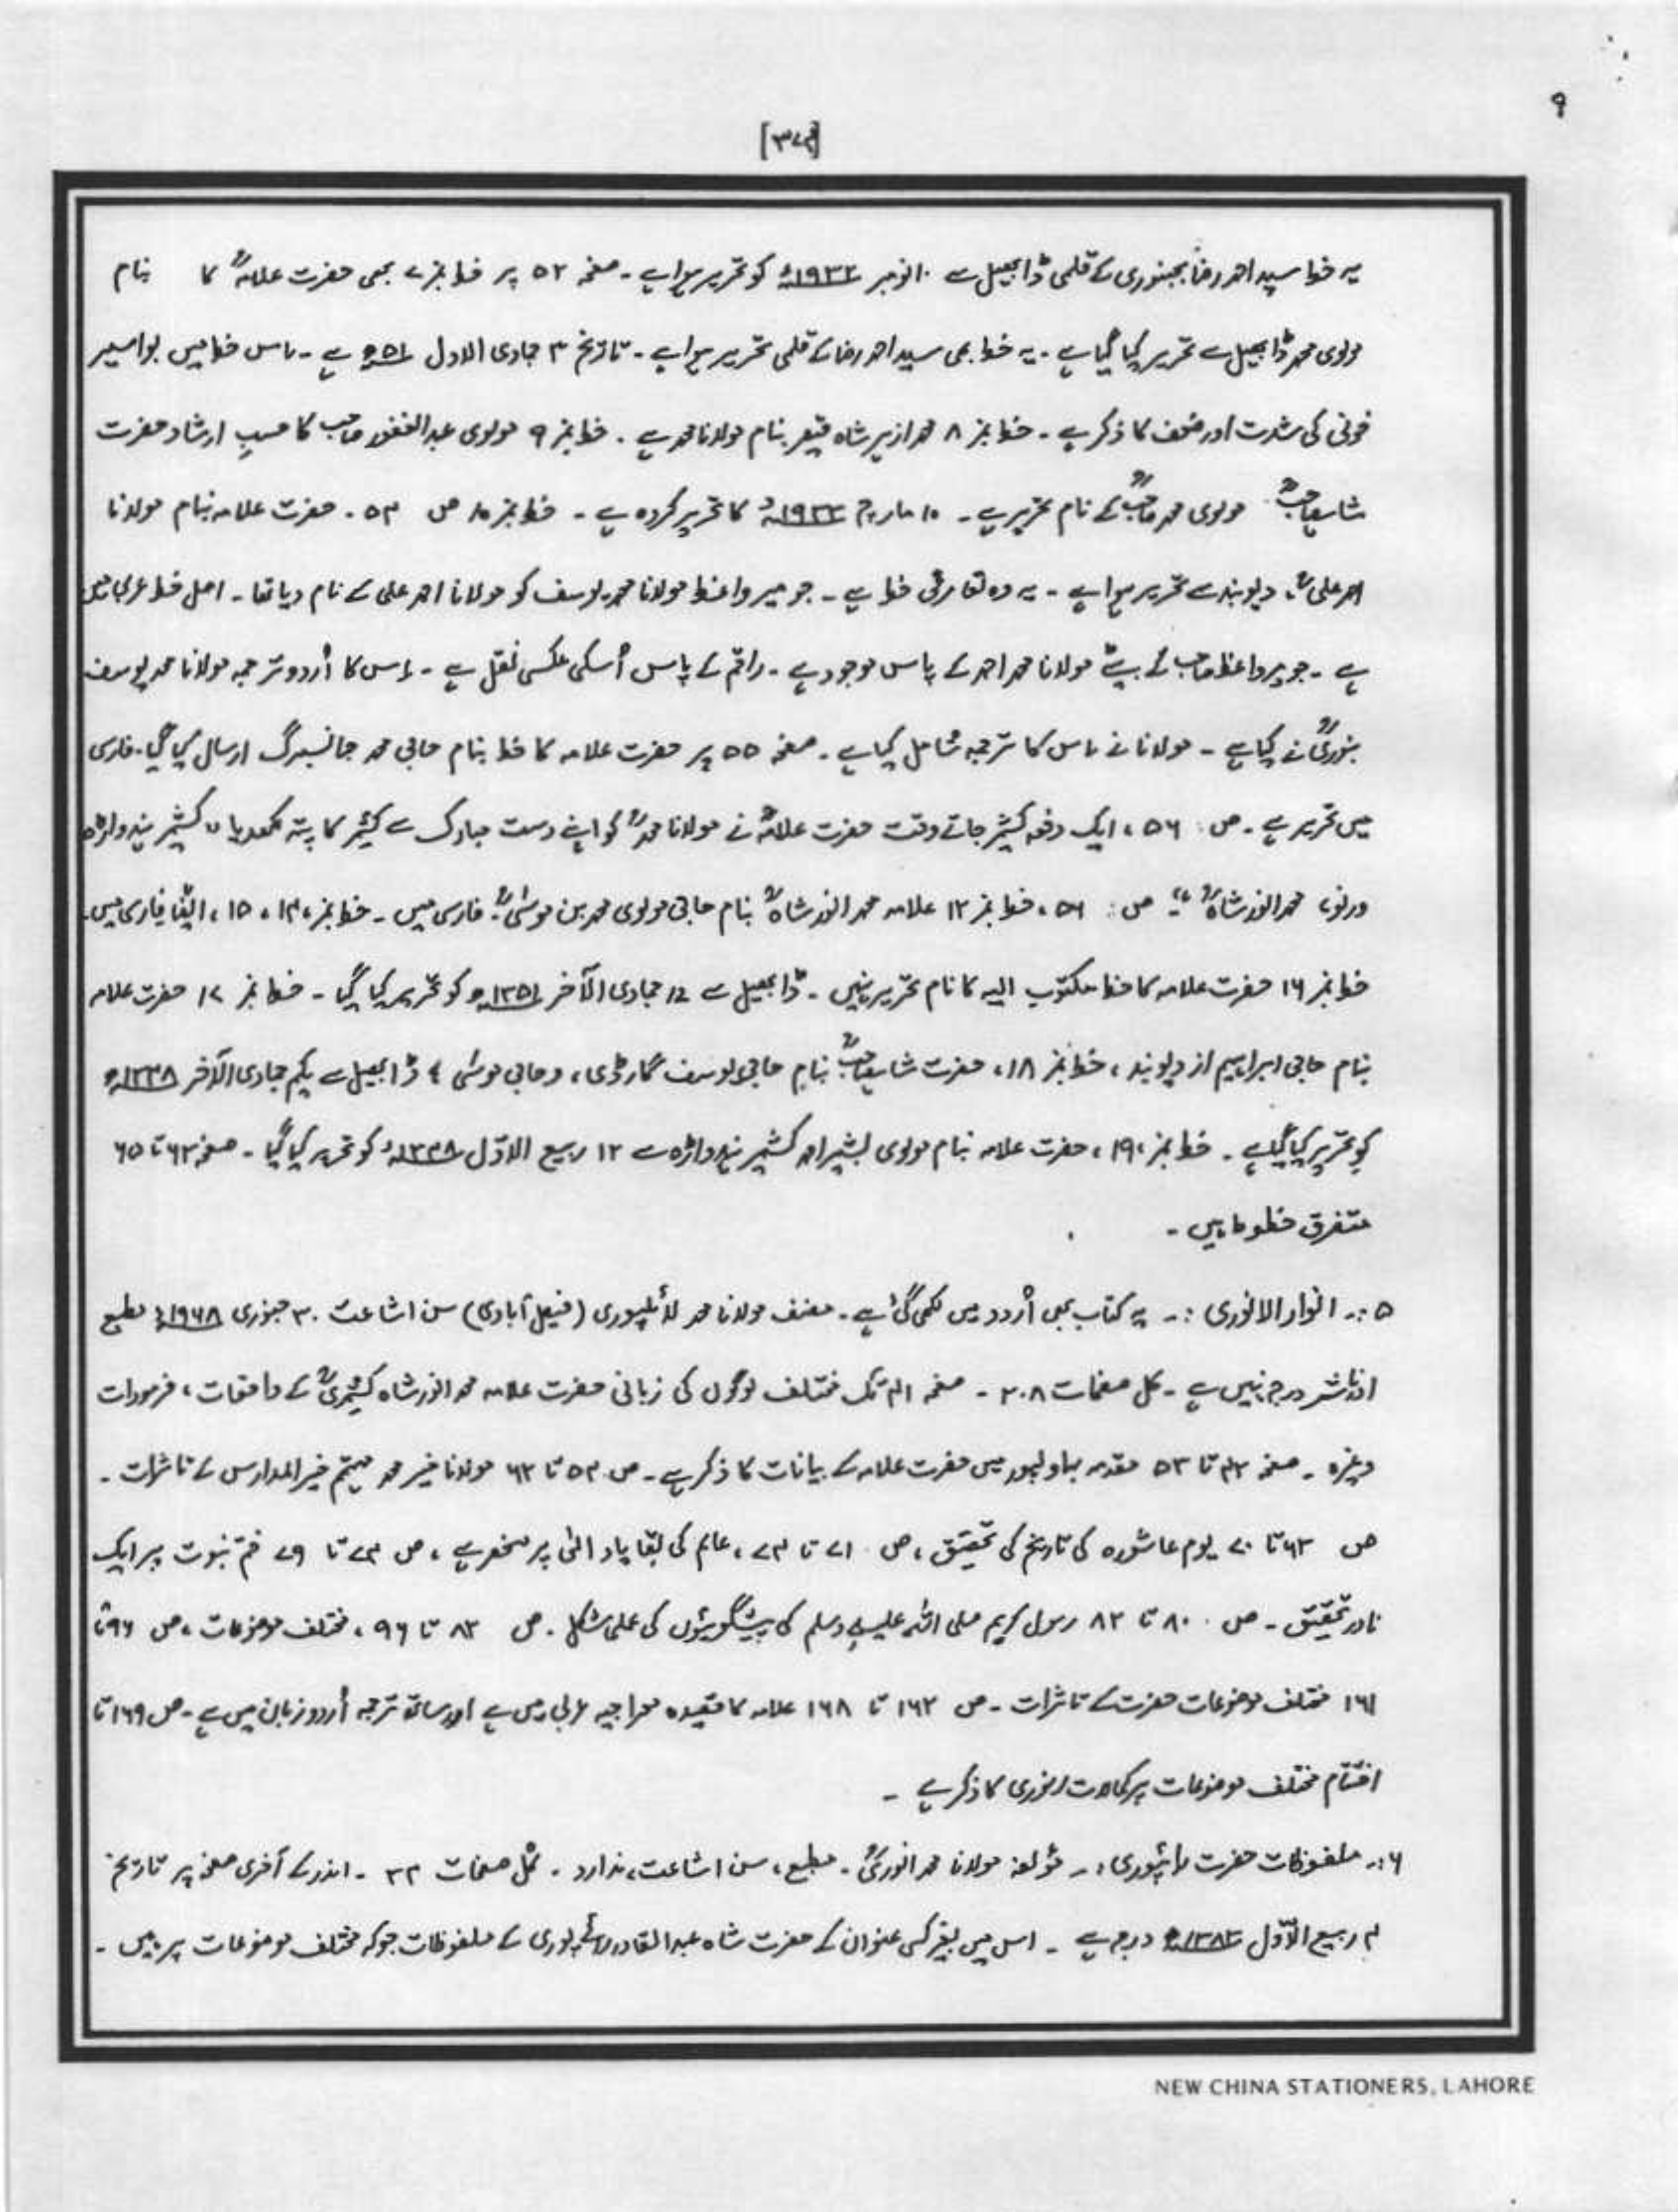 ۹
[۳۷۴]
یہ خط سید احمد رضا بجنوری کے قلمی ڈابھیل سے ۱۰ نومبر ۱۹۳۲ء کو تحریر ہوا ہے ۔ صفحہ ۵۲ پر خط نمبر ۷ بھی حضرت علامہؒ کا بنام
مولوی محمد ڈابھیل سے تحریر کیا گیا ہے ۔ یہ خط بھی سید احمد رضا کے قلمی تحریر ہوا ہے ۔ تاریخ ۳ جمادی الاول ۵۱ھ ہے ۔ اس خط میں بواسیر
خونی کی شدت اور ضعف کا ذکر ہے ۔ خط نمبر ۸ محمد ازہر شاہ قیصر بنام مولانا محمد ہے ۔ خط نمبر ۹ مولوی عبدالغفور صاحب کا حسبِ ارشاد حضرت
شاہ صاحبؒ مولوی محمد صاحبؒ کے نام تحریر ہے ۔ ۱۰ مارچ ۱۹۳۳ء کا تحریر کردہ ہے ۔ خط نمبر ۱۰ ص ۵۴ ۔ حضرت علامہ بنام مولانا
احمد علیؒ، دیوبند سے تحریر ہوا ہے ۔ یہ وہ تعارفی خط ہے ۔ جو میر واعظ مولانا محمد یوسف کو مولانا احمد علی کے نام دیا تھا ۔ اصل خط عربی میں
ہے ۔ جو میر واعظ صاحب کے بیٹے مولانا محمد احمد کے پاس موجود ہے ۔ راقم کے پاس اُسکی عکسی نقل ہے ۔ اس کا اُردو ترجمہ مولانا محمد یوسف
بنوریؒ نے کیا ہے ۔ مولانا نے اس کا ترجمہ شامل کیا ہے ۔ صفحہ ۵۵ پر حضرت علامہ کا خط بنام حاجی محمد جانسبرگ ارسال کیا گیا ۔ فارسی
میں تحریر ہے ۔ ص: ۵۶ ، ایک دفعہ کشمیر جاتے وقت حضرت علامہؒ نے مولانا محمدؒ کو اپنے دست مبارک سے کشمیر کا پتہ لکھدیا " کشمیر ہندواڑہ
ورنو، محمد انور شاہؒ "۔ ص: ۵۶ ، خط نمبر ۱۲ علامہ محمد انور شاہؒ بنام حاجی مولوی محمد بن موسیٰؒ۔ فارسی میں ۔ خط نمبر ، ۱۴ ، ۱۵ ، ایضًا فارسی میں۔
خط نمبر ۱۶ حضرت علامہ کا خط مکتوب الیہ کا نام تحریر نہیں ۔ ڈابھیل سے 12 جمادی الآخر ۱۳۵۱ھ کو تحریر کیا گیا ۔ خط نمبر ۱۷ حضرت علامہ
بنام حاجی ابراہیم از دیوبند ، خط نمبر ۱۸ ، حضرت شاہ صاحبؒ بنام حاجی یوسف گارڈی ، و حاجی موسیٰ ؛ ڈابھیل سے یکم جمادی الآخر ۱۳۴۸ھ
کو تحریر کیا گیا ہے ۔ خط نمبر ۱۹ ، حضرت علامہ بنام مولوی بشیر احمد کشمیر ہندواڑہ سے ۱۲ ربیع الاوّل ۱۳۴۸ھ کو تحریر کیا گیا ۔ صفحہ ۶۲ تا ۶۵
متفرق خطوط ہیں ۔
۵ :۔ انوار الانوری :۔ یہ کتاب بھی اُردو میں لکھی گئی ہے ۔ مصنف مولانا محمد لائلپوری (فیصل آبادی) سن اشاعت ۳۰ جنوری ۱۹۶۸ء مطبع
اور ناشر درج نہیں ہے ۔ کل صفحات ۲۰۸ ۔ صفحہ ۴۱ تک مختلف لوگوں کی زبانی حضرت علامہ محمد انور شاہ کشمیریؒ کے واقعات ، فرمودات
وغیرہ ۔ صفحہ ۴۲ تا ۵۳ مقدمہ بہاولپور میں حضرت علامہ کے بیانات کا ذکر ہے ۔ ص ۵۴ تا ۶۲ مولانا خیر محمد مہتمم خیرالمدارس کے تاثرات ۔
ص ۶۳ تا ۷۰ یوم عاشورہ کی تاریخ کی تحقیق ، ص ۷۱ تا ۷۴ ، عالم کی بقا یاد الٰہی پر منحصر ہے ، ص ۷۴ تا ۷۹ ختم نبوت پر ایک
نادر تحقیق ۔ ص ۸۰ تا ۸۲ رسول کریم صلی اللہ علیہ وسلم کی پیشگوئیوں کی عملی شکل ۔ ص ۸۳ تا ۹۶ ، مختلف موضوعات ، ص ۹۶ تا
۱۶۱ مختلف موضوعات حضرت کے تاثرات ۔ ص ۱۶۲ تا ۱۶۸ علامہ کا قصیدہ معراجیہ عربی میں ہے اور ساتھ ترجمہ اُردو زبان میں ہے ۔ ص ۱۶۹ تا
اختتام مختلف موضوعات پر کمالات انوری کا ذکر ہے ۔
۶ :۔ ملفوظات حضرت رائپوری :۔ مؤلفہ مولانا محمد انوریؒ ۔ مطبع ، سن اشاعت ، ندارد ۔ کُل صفحات ۳۲ ۔ اندر کے آخری صفحہ پر تاریخ
۴ ربیع الاوّل ۱۳۸۲ھ درج ہے ۔ اس میں بغیر کسی عنوان کے حضرت شاہ عبدالقادر رائے پوری کے ملفوظات جو کہ مختلف موضوعات پر ہیں ۔
NEW CHINA STATIONERS, LAHORE